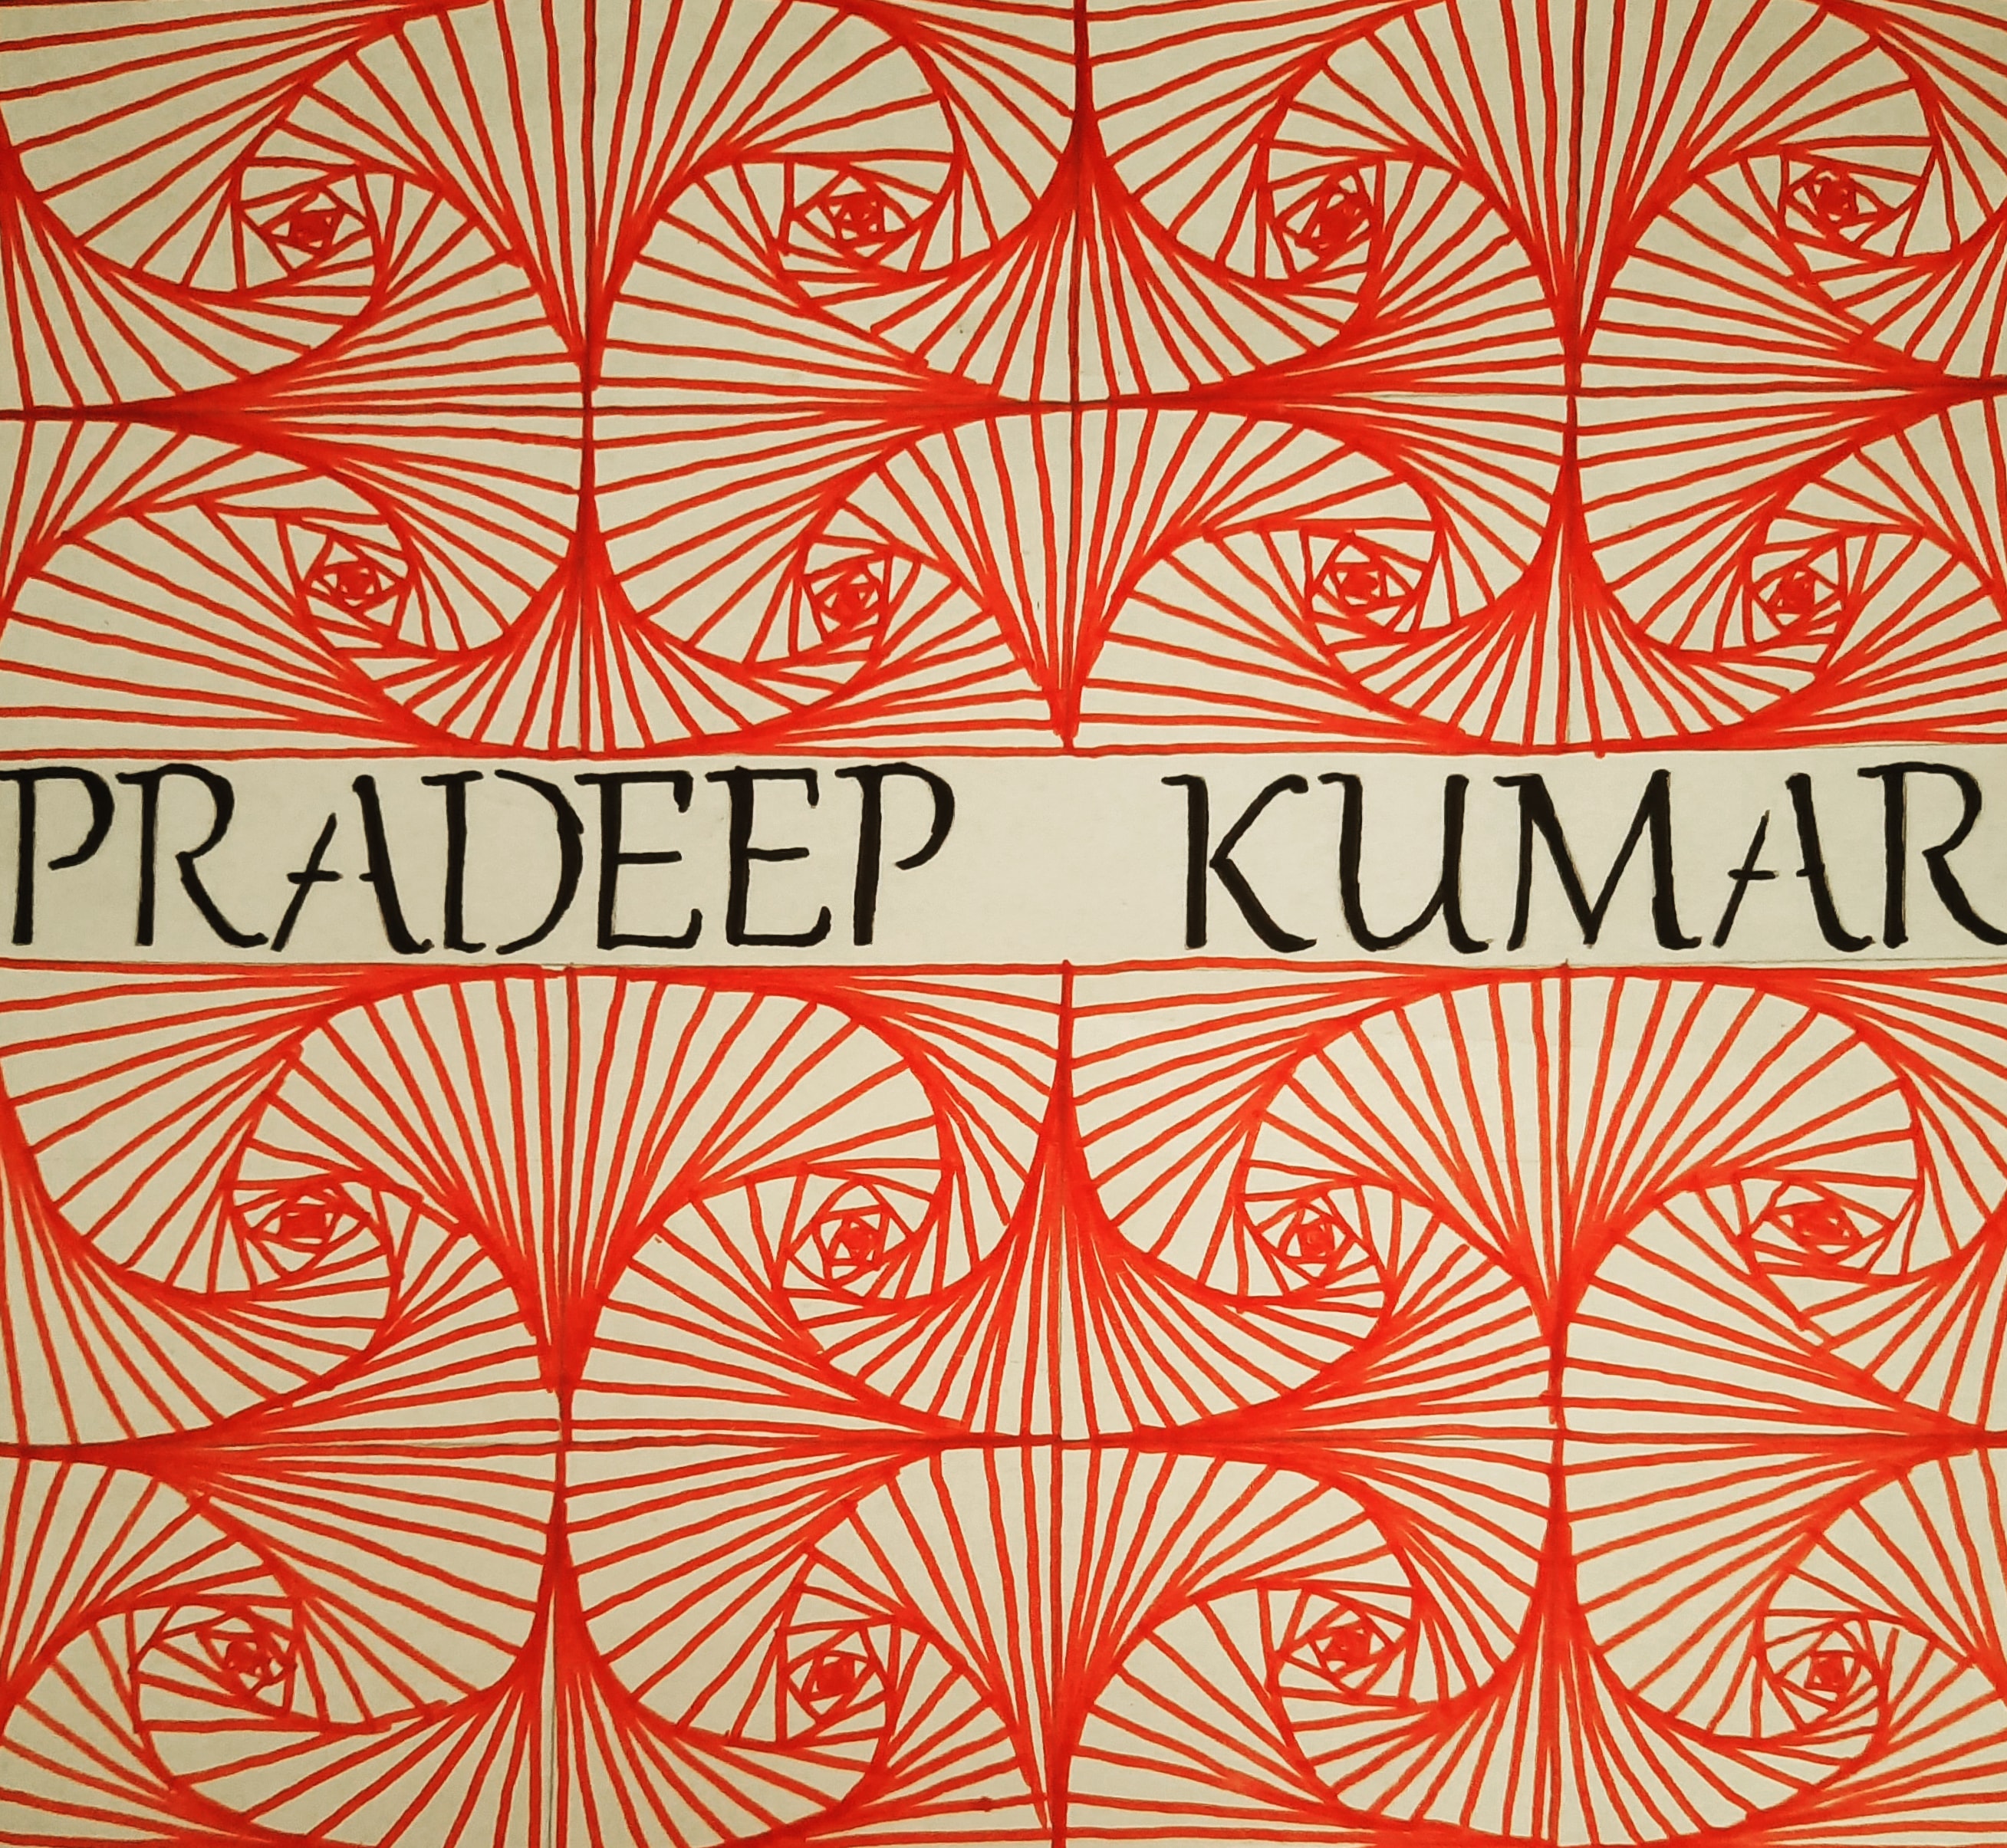 PRADEEP KUMAR